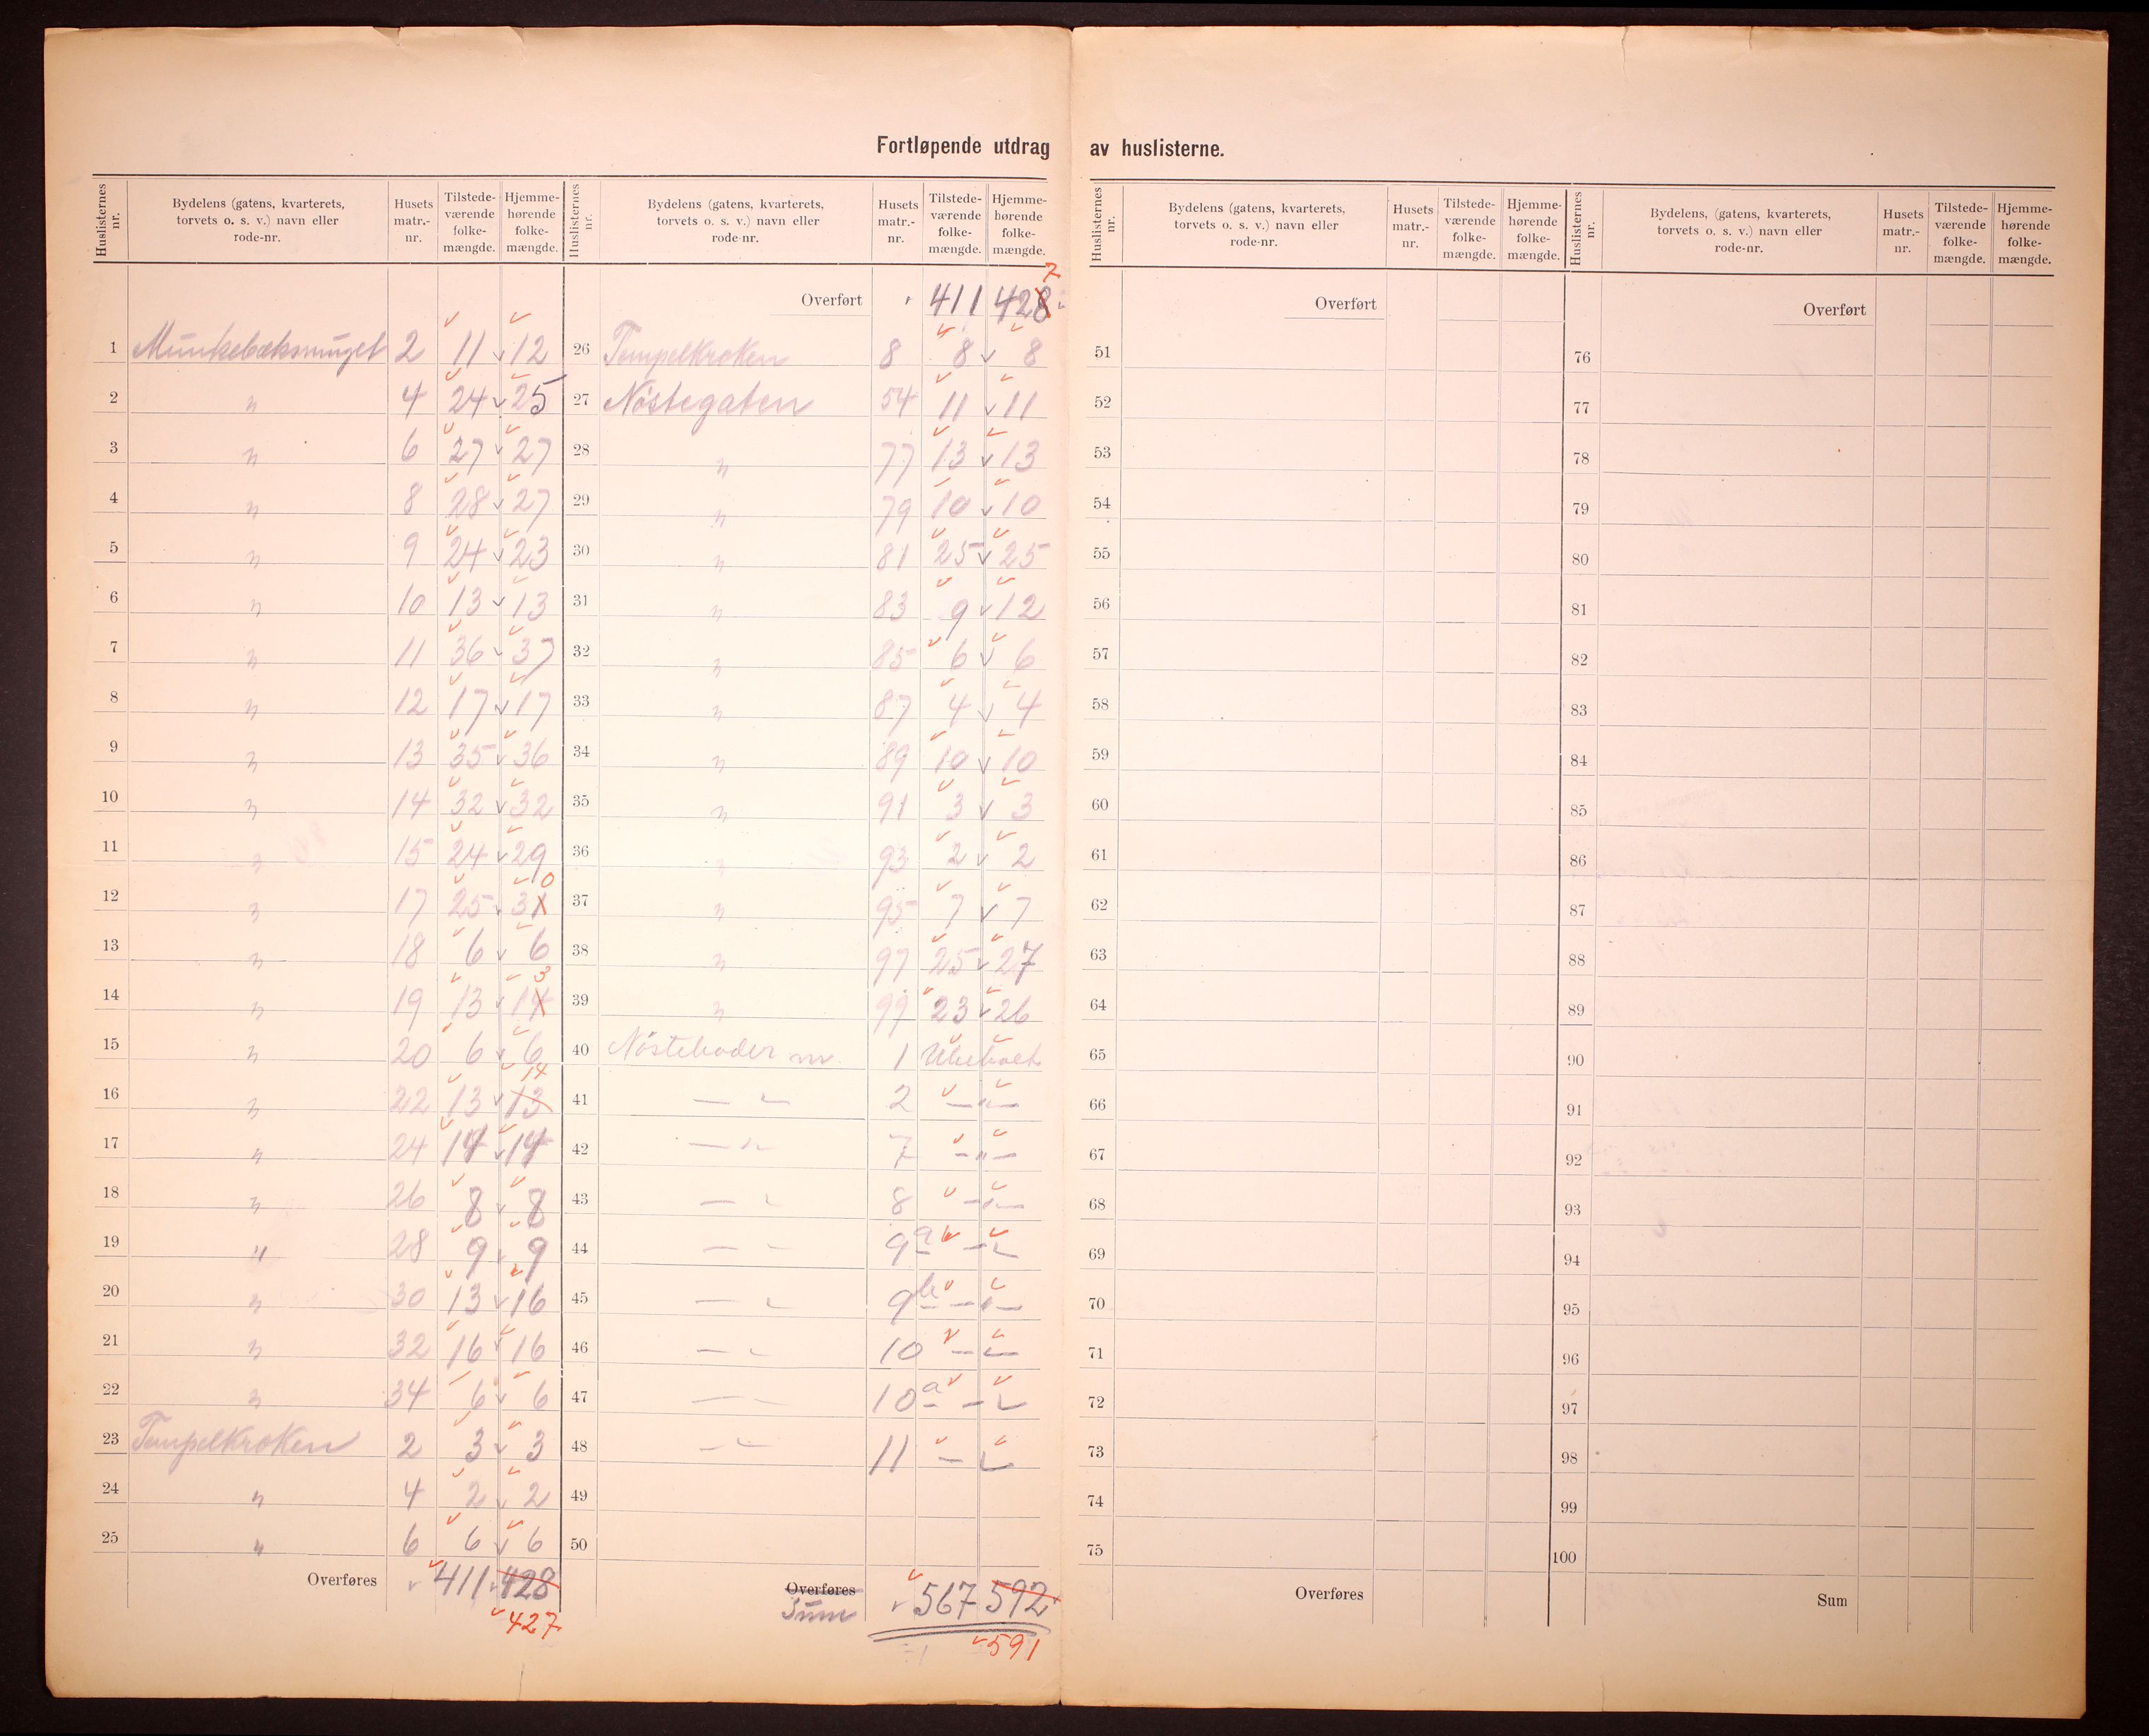 Fortløpende utdrag av huslisterne.
Huslisternes nr. | Bydelens (gatens, kvarterets, torvets o. s. v.) navn eller rode-nr. | Husets matr.-nr. | Tilstede-værende folke-mængde. | Hjemme-hørende folke-mængde.
1 Munkebæksmuget 2 11 12
2 " 4 24 25
3 " 6 27 27
4 " 8 28 27
5 " 9 24 23
6 " 10 13 13
7 " 11 36 37
8 " 12 17 17
9 " 13 35 36
10 " 14 32 32
11 " 15 24 29
12 " 17 25 31 0
13 " 18 6 6
14 " 19 13 14 3
15 " 20 6 6
16 " 22 13 13 14
17 " 24 14 14
18 " 26 8 8
19 " 28 9 9
20 " 30 13 16
21 " 32 16 16
22 " 34 6 6
23 Tempelkroken 2 3 3
24 " 4 2 2
25 " 6 6 6
Overføres 411 428
427
Huslisternes nr. | Bydelens (gatens, kvarterets, torvets o. s. v.) navn eller rode-nr. | Husets matr.-nr. | Tilstede-værende folke-mængde. | Hjemme-hørende folke-mængde.
Overført 411 428 7
26 Tempelkroken 8 8 8
27 Nöstegaten 54 11 11
28 " 77 13 13
29 " 79 10 10
30 " 81 25 25
31 " 83 9 12
32 " 85 6 6
33 " 87 4 4
34 " 89 10 10
35 " 91 3 3
36 " 93 2 2
37 " 95 7 7
38 " 97 25 27
39 " 99 23 26
40 Nösteboder nr. 1 Ubeboet
41 — " — 2 — " —
42 — " — 7 — " —
43 — " — 8 — " —
44 — " — 9a — " —
45 — " — 9b — " —
46 — " — 10 — " —
47 — " — 10a — " —
48 — " — 11 — " —
49
50
Overføres
Sum 567 592
591
Huslisternes nr. | Bydelens (gatens, kvarterets, torvets o. s. v.) navn eller rode-nr. | Husets matr.-nr. | Tilstede-værende folke-mængde. | Hjemme-hørende folke-mængde.
Overført
51
52
53
54
55
56
57
58
59
60
61
62
63
64
65
66
67
68
69
70
71
72
73
74
75
Overføres
Huslisternes nr. | Bydelens, (gatens, kvarterets, torvets o. s. v.) navn eller rode-nr. | Husets matr.-nr. | Tilstede-værende folke-mængde. | Hjemme-hørende folke-mængde.
Overført
76
77
78
79
80
81
82
83
84
85
86
87
88
89
90
91
92
93
94
95
96
97
98
99
100
Sum